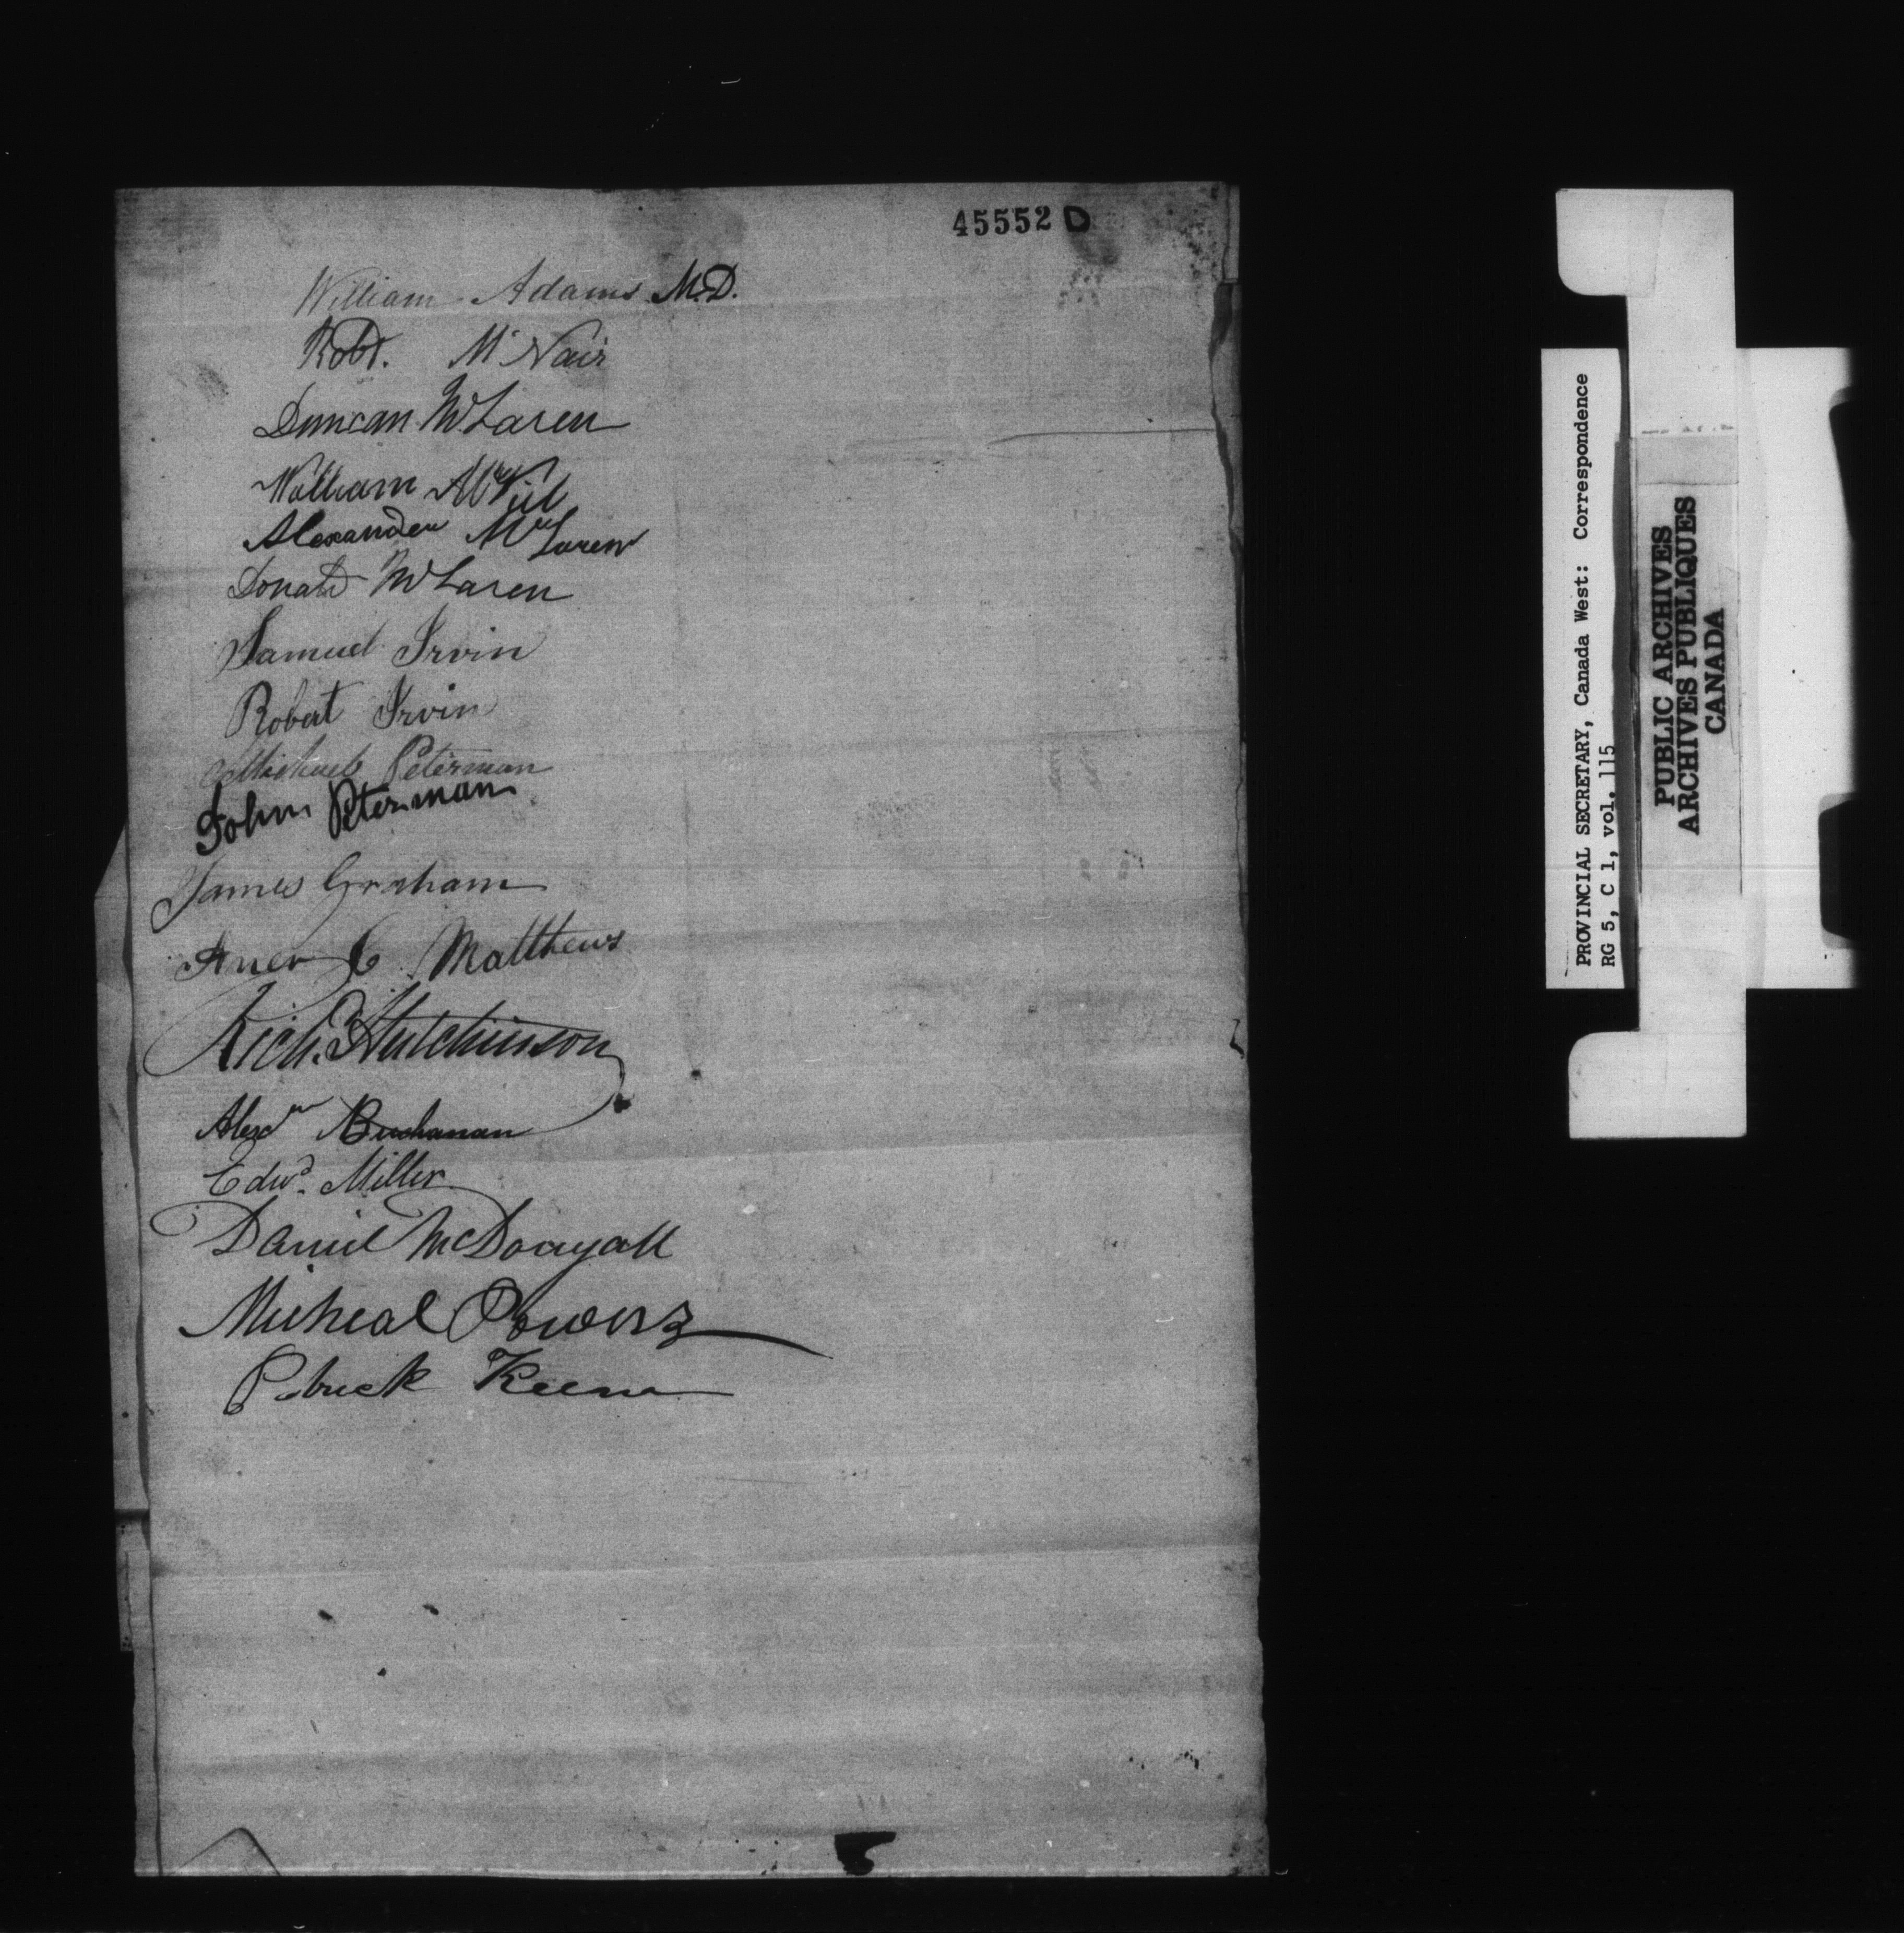 45552 D
William Adams M.D.
Robt. Mc Nair
Duncan McLaren
William McNiel
Alexander McLaren
Donald McLaren
Samuel Irvin
Robert Irvin
Michael Peterman
John Peterman
James Graham
Matthews
Rich. Hutchinson
Alexdr Buchanan
Edwd. Miller
Daniel McDougall
Micheal Powers
Patrick Keena
PROVINCIAL SECRETARY, Canada West: Correspondence
RG 5, C 1, vol. 115
PUBLIC ARCHIVES
ARCHIVES PUBLIQUES
CANADA